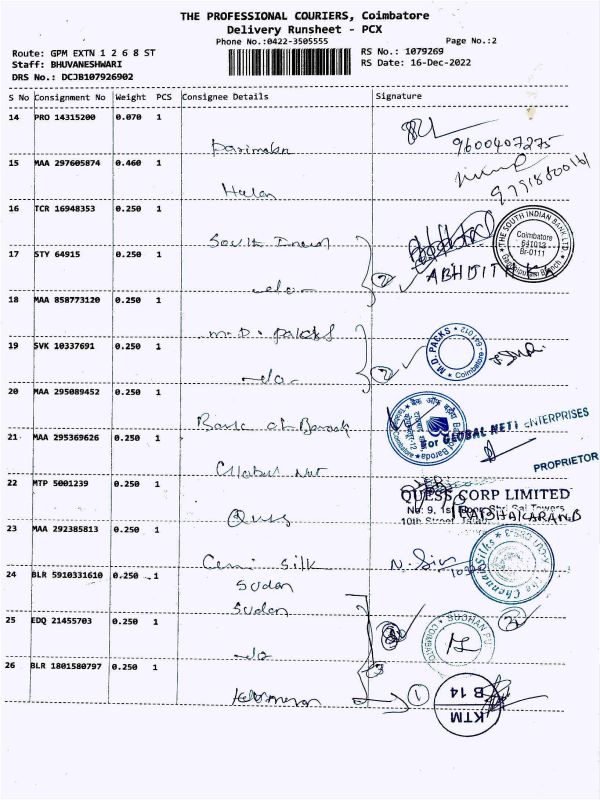 THE PROFESSIONAL COURIERS, Coimbatore
Delivery Runsheet - PCX
Phone No.:0422-3505555
Page No.:2
Route: GPM EXTN 1 2 6 8 ST
RS No.: 1079269
Staff: BHUVANESHWARI
RS Date: 16-Dec-2022
DRS No.: DCJB107926902
S No Consignment No Weight PCS Consignee Details Signature
14 PRO 14315200 0.070 1
9600407275
15 MAA 297605874 0.460 1
16 TCR 16948353 0.250 1
THE SOUTH INDIAN BANK LTD
Coimbatore
641012
Br-0111
17 STY 64915 0.250 1
2
ABHIJIT
18 MAA 858773120 0.250 1
M.D. Packs
19 SVK 10337691 0.250 1
M.D. PACKS
Coimbatore-641 012
-do-
2
20 MAA 295089452 0.250 1
Bank of Baroda
For GLOBAL NETT ENTERPRISES
21 MAA 295369626 0.250 1
Global Net
PROPRIETOR
22 MTP 5001239 0.250 1
QUESS CORP LIMITED
No: 9, 1st Floor, Shri Sai Towers
10th Street
Quss
23 MAA 292385813 0.250 1
The Chennai Silks
N. Siv
24 BLR 5910331610 0.250 1
Sudan
Sudan
25 EDQ 21455703 0.250 1
-do
26 BLR 1801580797 0.250 1
1
B 14
KTM